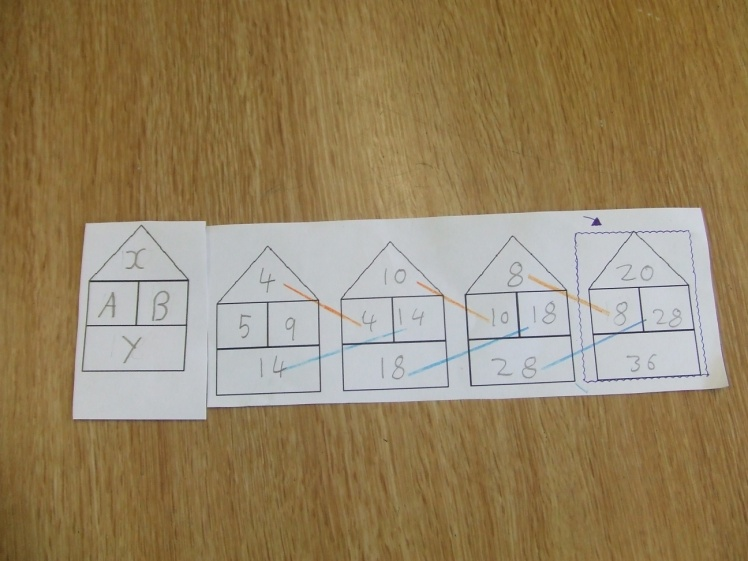 x
A B
Y
4
5 9
14
10
4 14
18
8
10 18
28
20
8 28
36